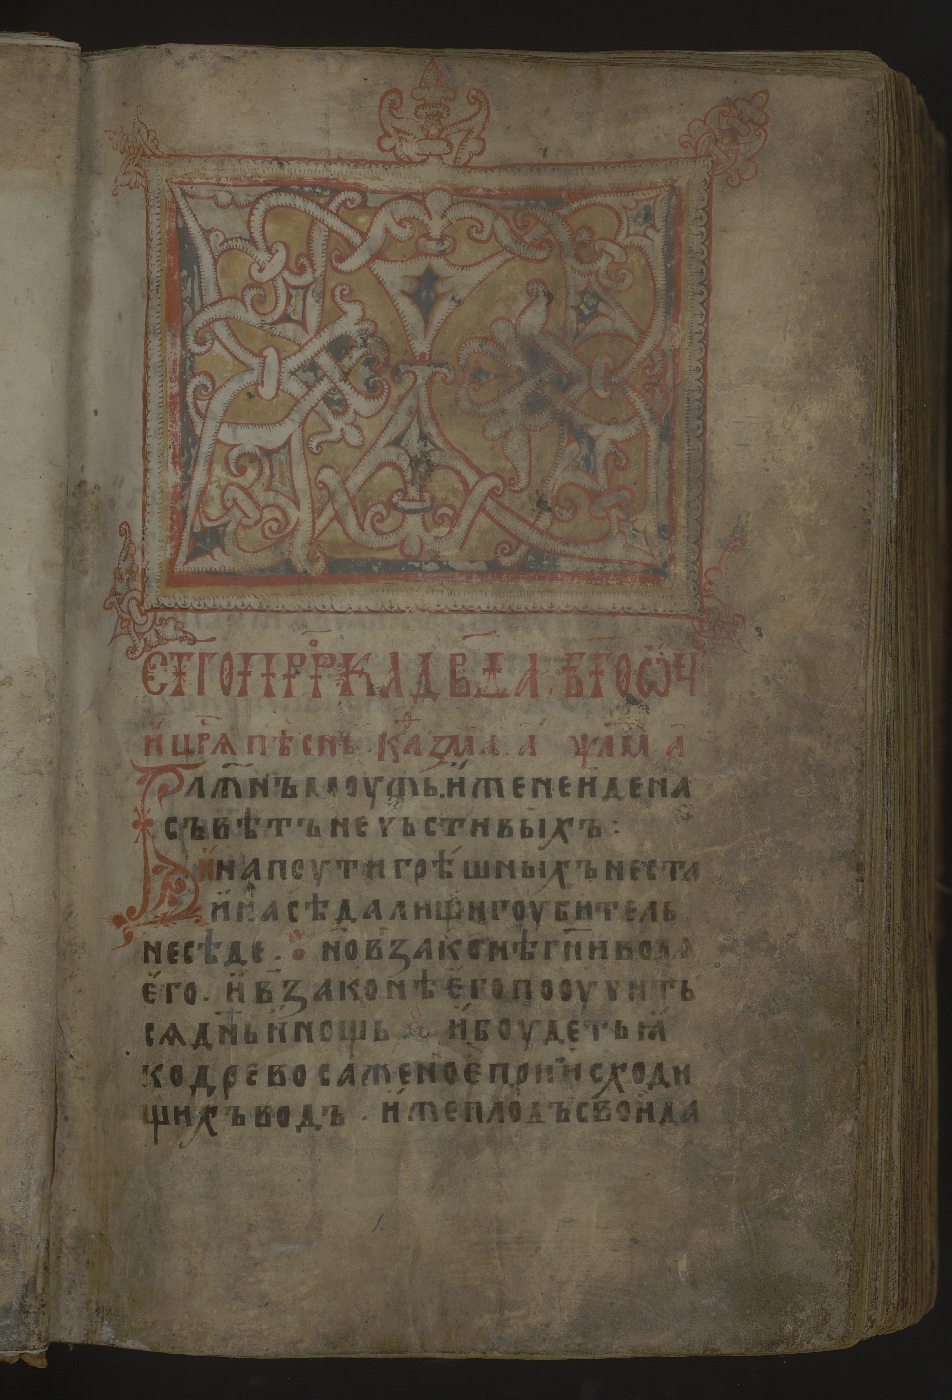 СТ҃ГОПРР҃КАДВ҃ДА. БГ҃ОѠЧ
Н ЦР҃Ѧ ПѢСНЬ. КАѲИЗМА. А҃ ѰАМ҃ А҃
БЛ҃ЖНЪ МОУЖЬ. ИЖЕ НЕ ИДЕ НА
СЪВѢТЪ НЕЧЬСТИВЫХЪ :
И НА ПОУТИ ГРѢШНЫХЪ НЕ СТА
И НА СѢДАЛИЩИ ГОУБИТЕЛЬ
НЕ СѢДЕ . НО В ЗАКОНѢ ГН҃И ВОЛѦ
ЕГО . И В ЗАКОНѢ ЕГО ПООУЧИТЬ
СѦ ДН҃Ь И НОЩЬ И БОУДЕТЬ Ꙗ
КО ДРЕВО САЖЕНОЕ ПРИ ИСХОДИ
ЩИХЪ ВОДЪ . ИЖЕ ПЛОДЪ СВОИ ДА